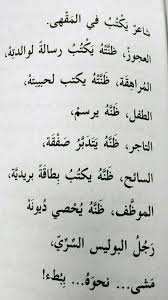 شاعرٌ يَكْتُبُ في المَقْهى.
العجوزُ، ظَنَّتْهُ يَكْتُبُ رسالةً لوالديْهِ،
المُراهِقَة، ظَنَّتْهُ يكتب لحبيبتِهْ،
الطفل، ظَنَّهُ يرسمْ،
التاجر، ظَنَّهُ يَتَدَبَّرُ صَفْقَة،
السائح، ظَنَّهُ يكتُبُ بِطاقةً بريدية،
الموظَّف، ظَنَّهُ يُحْصي دُيونَهْ
رَجُلُ البوليس السِّرِّي،
مَشى... نحوَهُ... بِبُطء!